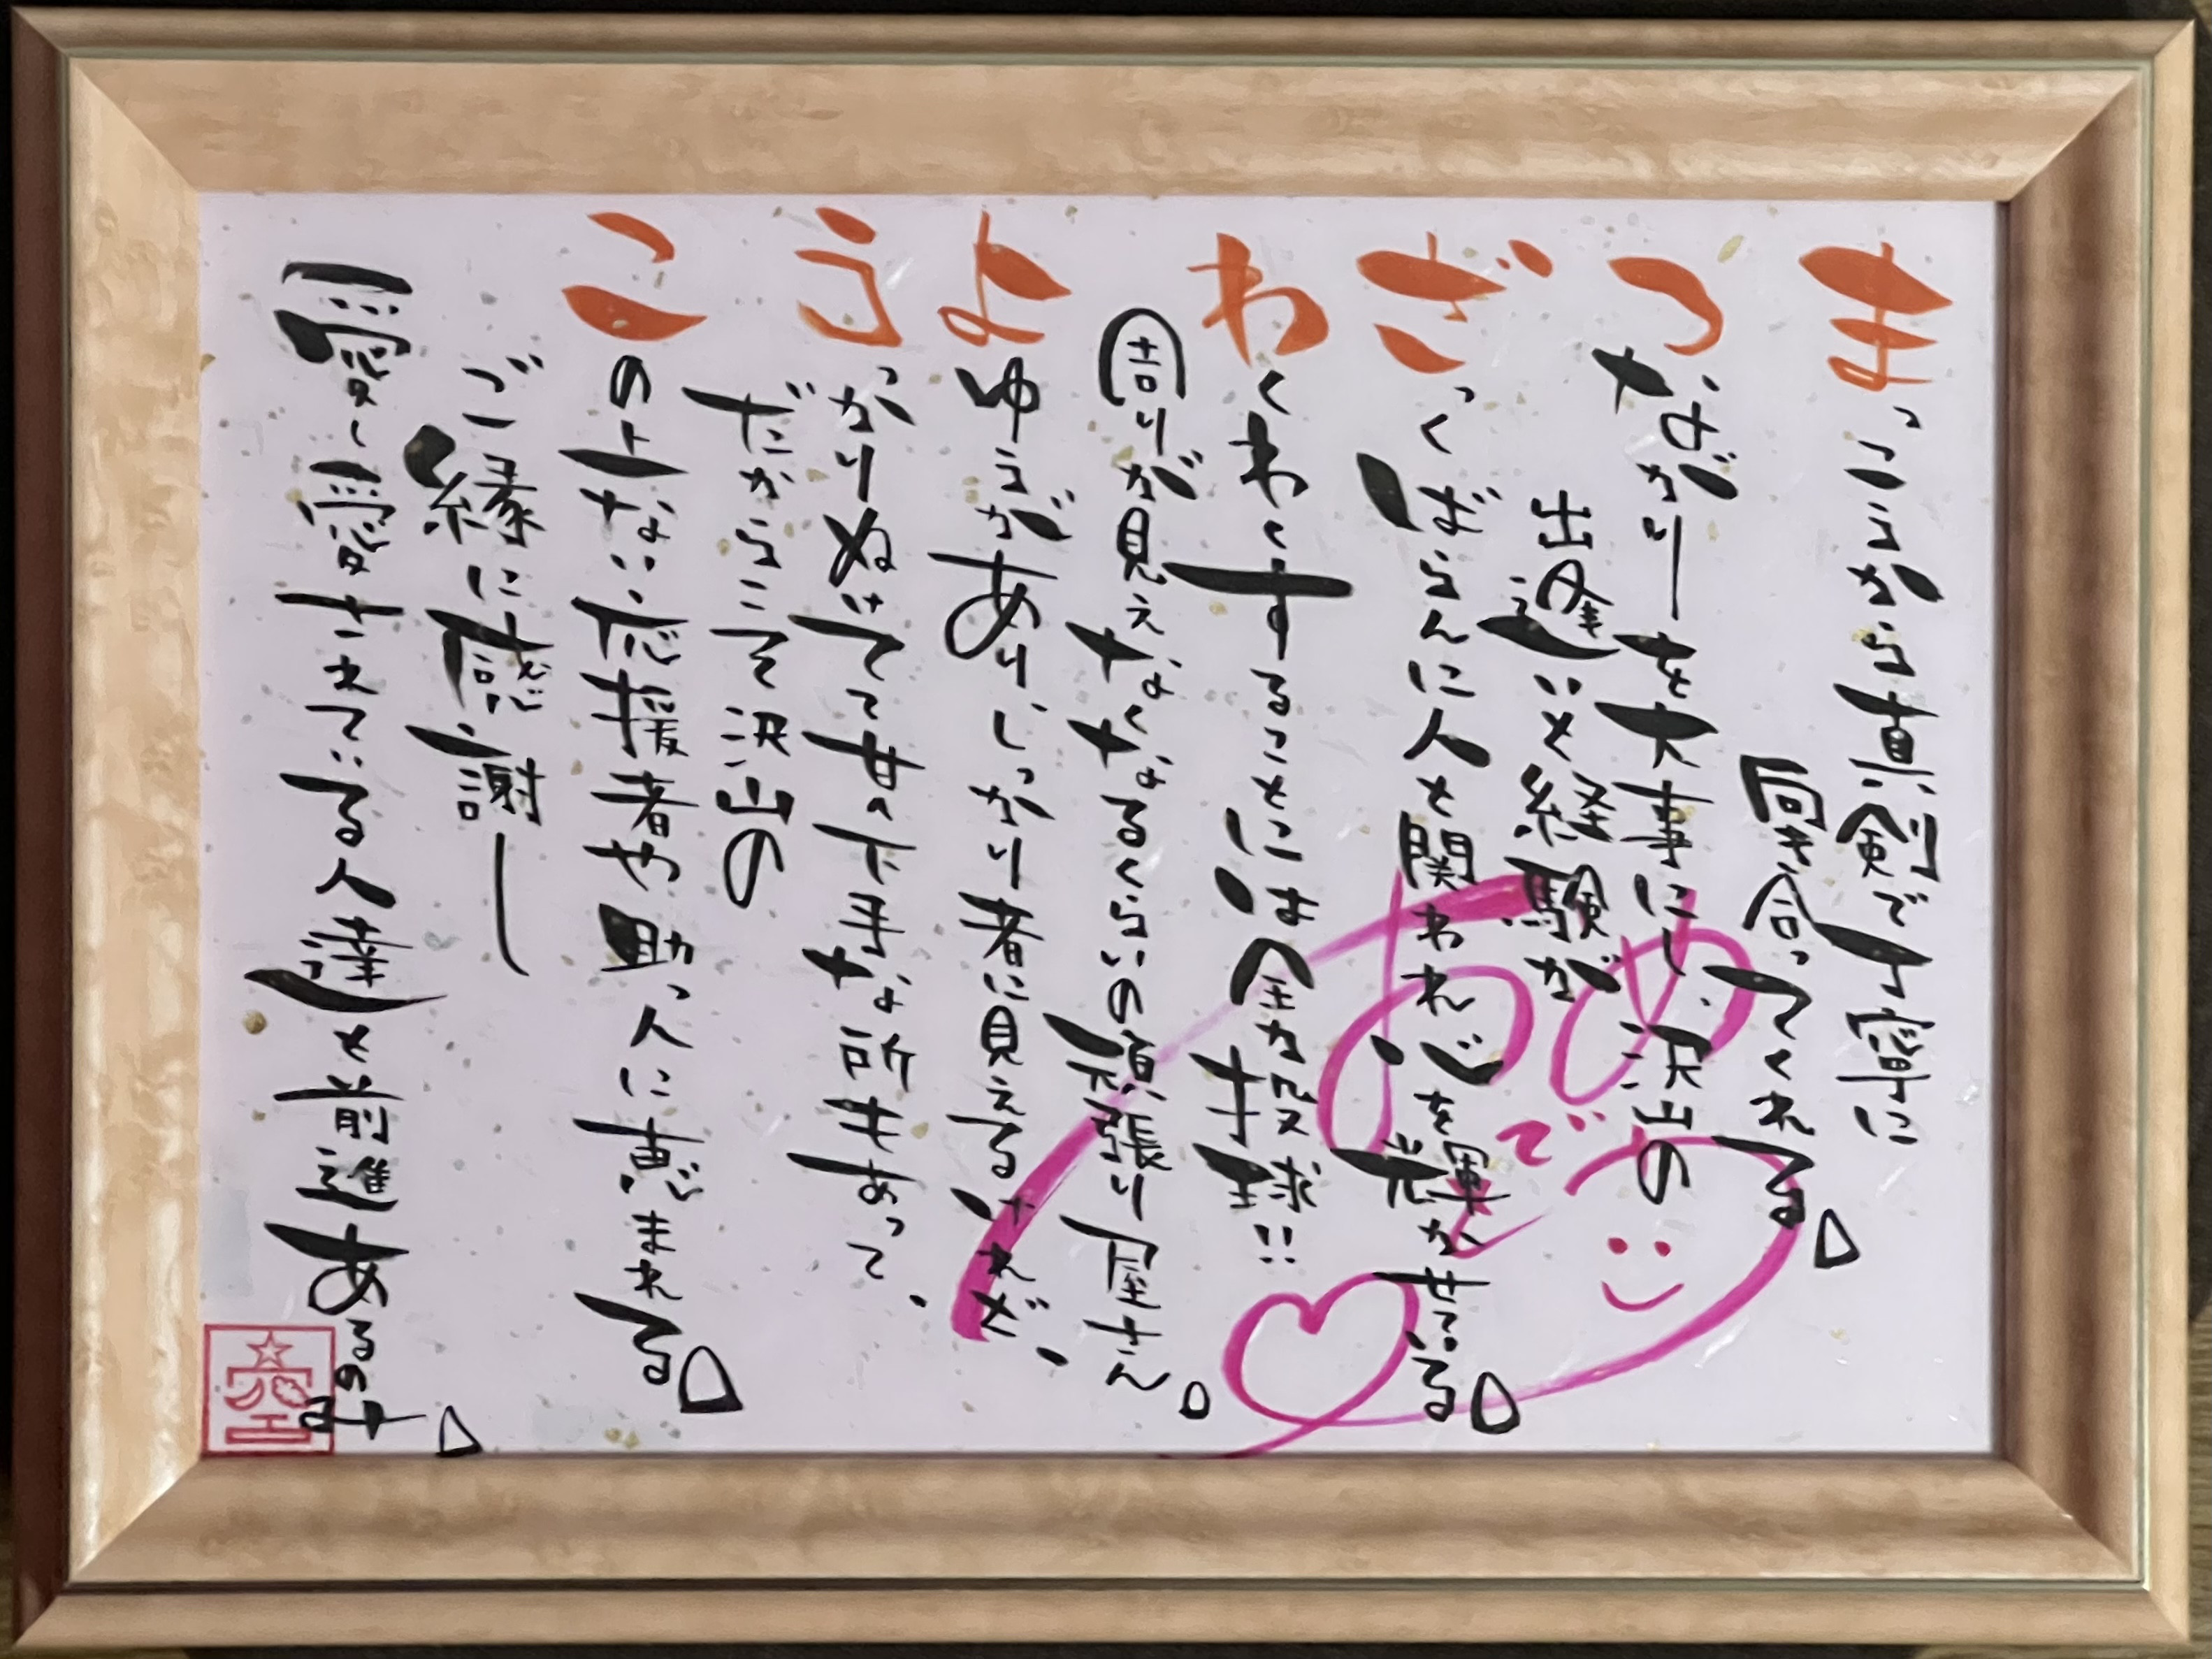 まっこうから真剣で丁寧に
向き合ってくれる。
つながりーを大事にし、沢山の
出逢いと経験が
ざっくばらんに人と関われ心を輝かせている。
わくわくすることには全力投球!!
周りが見えなくなるくらいの頑張り屋さん。
よゆうがあり、しっかり者に見えるけれど、
うっかりぬけてて甘え下手な所もあって、
だからこそ沢山の
この上ない応援者や助っ人に恵まれる。
ご縁に感謝ー
愛し愛されている人達と前進あるのみ。